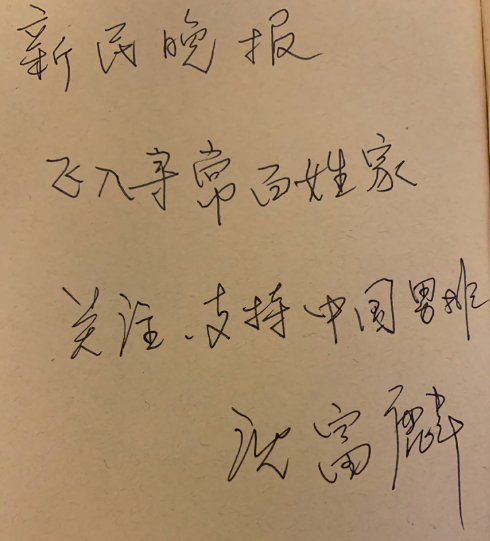 新民晚报
飞入寻常百姓家
关注、支持中国男排
沈富麟